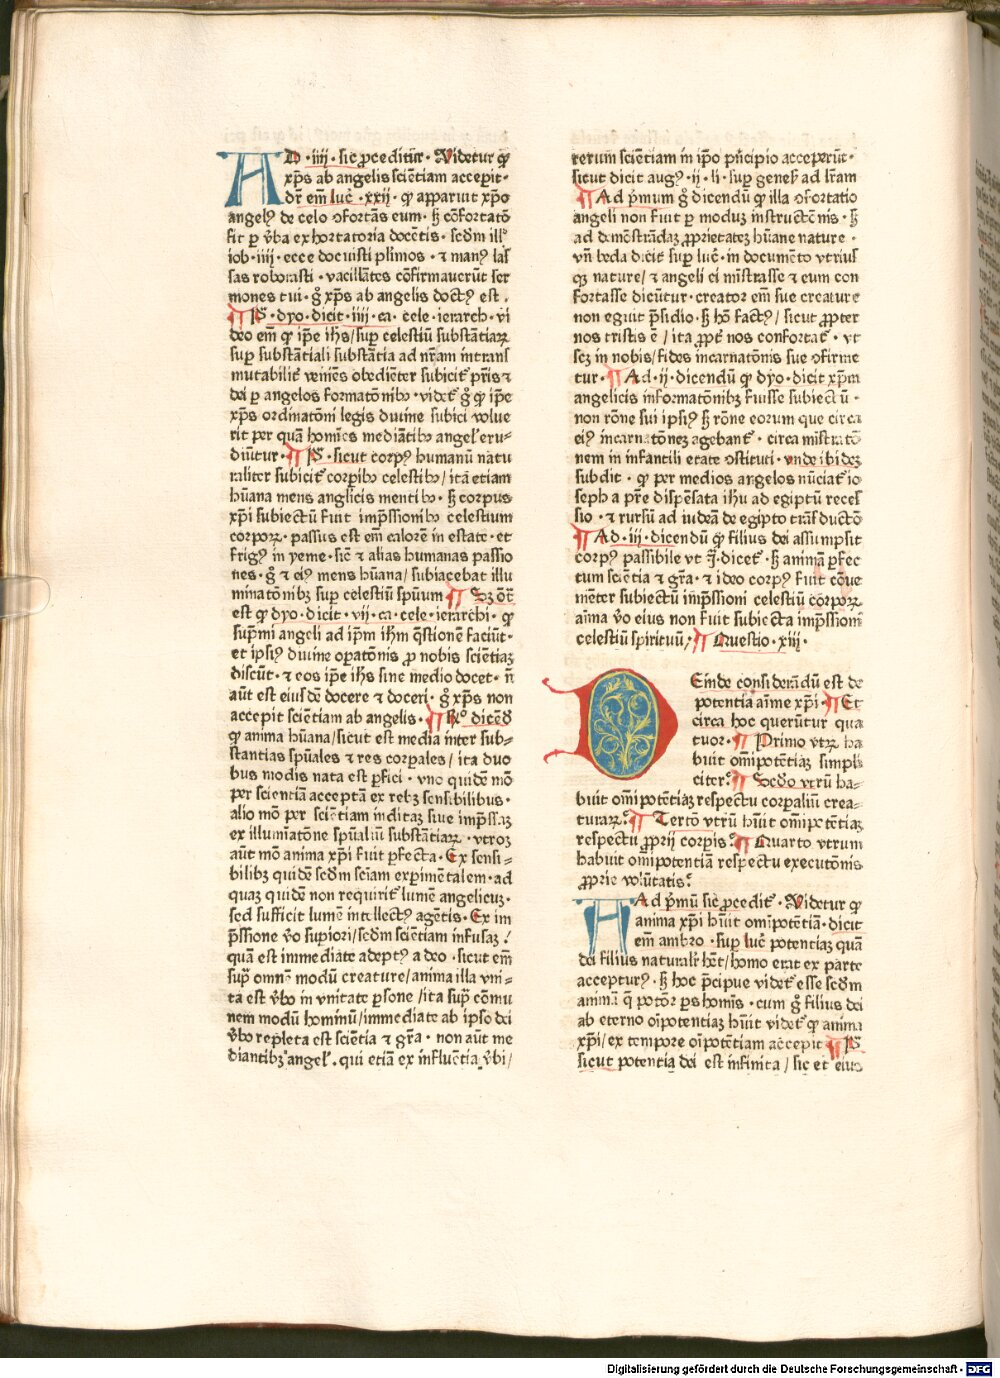 AD ·iiij· sic ꝓceditur· Videtur ꝙ
xp̄s ab angelis sciētiam acceꝑit·
dr̄ em̄ luc̄ ·xxij· ꝙ apparuit xp̄o
angelꝰ de celo ↄfortās eum· ꝫ cōfortatō
fit ꝑ v̄ba exhortatoria docētis· scd̄m illꝰ
iob·iiij· ecce docuisti plīmos · ⁊ manꝰ las
sas roborasti · vacillātes cōfirmauerūt ser
mones tui · gͦ xp̄s ab angelis doctꝰ est .
¶ P̄ꝫ · dyo·dicit·iiij·ca· cele·ierarch·vi
deo em̄ ꝙ ip̄e ih̄s/suꝑ celestiū substātiaꝝ
suꝑ substātiali substātia ad nr̄am intrans
mutabilit̄ veniēs obediēter subicit̄ pr̄is ⁊
dei ꝑ angelos formatōnibꝫ · videt̄ gͦ ꝙ ip̄e
xp̄s ordinatōni legis diuine subici volue
rit per quā homīes mediātibꝫ angel̄ eru-
diūtur· ¶ P̄ꝫ · sicut corpꝰ humanū natu
raliter subicit̄ corꝑibꝫ celestibꝫ/ itā etiam
hūana mens anglicis mentibꝫ· ꝫ corpus
xp̄i subiectū fuit imp̄ssionibꝫ celestium
corpoꝝ· passus est em̄ calorē in estate·et
frigꝰ in yeme·sic̄ ⁊ alias humanas passio
nes·gͦ ⁊ eiꝰ mens hūana/ subiacebat illu
minatōnibꝫ suꝑ celestiū sp̄uum ¶ Sꝫ ōt̄
est ꝙ dyo·dicit·vij·ca·cele·ierarchi· ꝙ
sup̄mi angeli ad ip̄m ih̄m q̄stionē faciūt·
et ipsiꝰ diuine oꝑatōnis ꝓ nobis sciētiaꝫ
discūt· ⁊ eos ip̄e ih̄s sine medio docet· n̄
aūt est eiusdē docere ⁊ doceri· gͦ xp̄s non
accepit sciētiam ab angelis·¶ Rͦ dicēd
ꝙ anima hūana/sicut est media inter sub-
stantias sp̄uales ⁊ res corꝑales/ ita duo
bus modis nata est ꝑfici · vno quidē mō
per scientiā acceptā ex rebꝫ sensibilibus·
alio mō per sciētiam inditaꝫ siue imp̄ssaꝫ
ex illuminatōne sp̄ualiū substātiaꝝ· vtroꝫ
aūt mō anima xp̄i fuit ꝑfecta· Ex sensi-
bilibꝫ quidē scd̄m scīam experimētalem·ad
quaꝫ quidē non requirit̄ lumē angelicuꝫ·
sed sufficit lumē intellectꝰ agētis· Ex im
p̄ssione v̄o suꝑiori/scd̄m sciētiam infusaꝫ/
quā est immediate adeptꝰ a deo · sicut em̄
sup̄ omnē modū creature/anima illa vni-
ta est v̄bo in vnitate ꝑsone/ita sup̄ cōmu
nem modū hominū/immediate ab ipso dei
v̄bo repleta est sciētia ⁊ gr̄a· non aūt me
diantibꝫ angel̄· qui etiā ex influētia v̄bi/
rerum sciētiam in ip̄o pͥncipio acceꝑūt·
sicut dicit augꝰ·ij·li·suꝑ genes̄ ad lr̄am
¶ Ad pͥmum gͦ dicendū ꝙ illa ↄfortatio
angeli non fuit ꝑ moduꝫ instructōnis· ꝫ
ad demōstrādaꝫ ꝓprietateꝫ hūane nature ·
vn̄ beda dicit suꝑ luc̄·in documēto vtrius
qꝫ nature/ ⁊ angeli ei mīstrasse ⁊ eum con
fortasse dicūtur·creator em̄ sue creature
non eguit p̄sidio· ꝫ hō factꝰ/ sicut ꝓpter
nos tristis ē / ita ꝓpt̄ nos confortat̄· vt
scꝫ in nobis/fides incarnatōnis sue ↄfirme
tur·¶ Ad·ij·dicendū ꝙ dyo·dicit xp̄m
angelicis informatōnibꝫ fuisse subiectū·
non rōne sui ipsiꝰ ꝫ rōne eorum que circa
eiꝰ incarnatōneꝫ agebant̄ · circa mīstratō
nem in infantili etate ↄstituti· vnde ibideꝫ
subdit· ꝙ per medios angelos nūciat̄ io
seph a pr̄e dispēsata ih̄u ad egiptū reces
sio · ⁊ rursū ad iudeā de egipto trās ductō
¶ Ad·iij·dicendū ꝙ filius dei assumpsit
corpꝰ passibile vt jͣ·dicet̄· ꝫ animā ꝑfec
tum sciētia ⁊ gr̄a· ⁊ ideo corpꝰ fuit cōue
niēter subiectū imp̄ssioni celestiū corpoꝝ
aīma v̄o eius non fuit subiecta imp̄ssioni
celestiū spirituū; ¶ Questio·xiij·
DEinde considerādū est de
potentia aīme xp̄i·¶ Et
circa hoc querūtur qua
tuor· ¶ Primo vtꝝ ha
buit om̄ipotētiaꝫ simpli
citer? ¶ Scd̄o vtrū ha-
buit om̄ipotētiaꝫ respectu corꝑaliū crea-
turaꝝ? ¶ Tertō vtrū h̄uit om̄ipotētiaꝫ
respectu ꝓprij corꝑis? ¶ Quarto vtrum
habuit om̄ipotentiā respectu executōnis
ꝓprie volūtatis?
AAd pͥmū sic ꝓcedit̄· Videtur ꝙ
anima xp̄i h̄uit omīpotētiā·dicit
em̄ ambro ·suꝑ luc̄ potentiaꝫ quā
dei filius naturalr̄ h̄et/homo erat ex parte
accepturꝰ· ꝫ hoc p̄cipue videt̄ esse scd̄m
animā q̄ potōr ꝑs homīs · cum gͦ filius dei
ab eterno oīpotentiaꝫ h̄uit videt̄ ꝙ anima
xp̄i/ ex tempore oīpotētiam accepit ¶ P̄ꝫ
sicut potentia dei est infinita / sic et eius
Digitalisierung gefördert durch die Deutsche Forschungsgemeinschaft · DFG